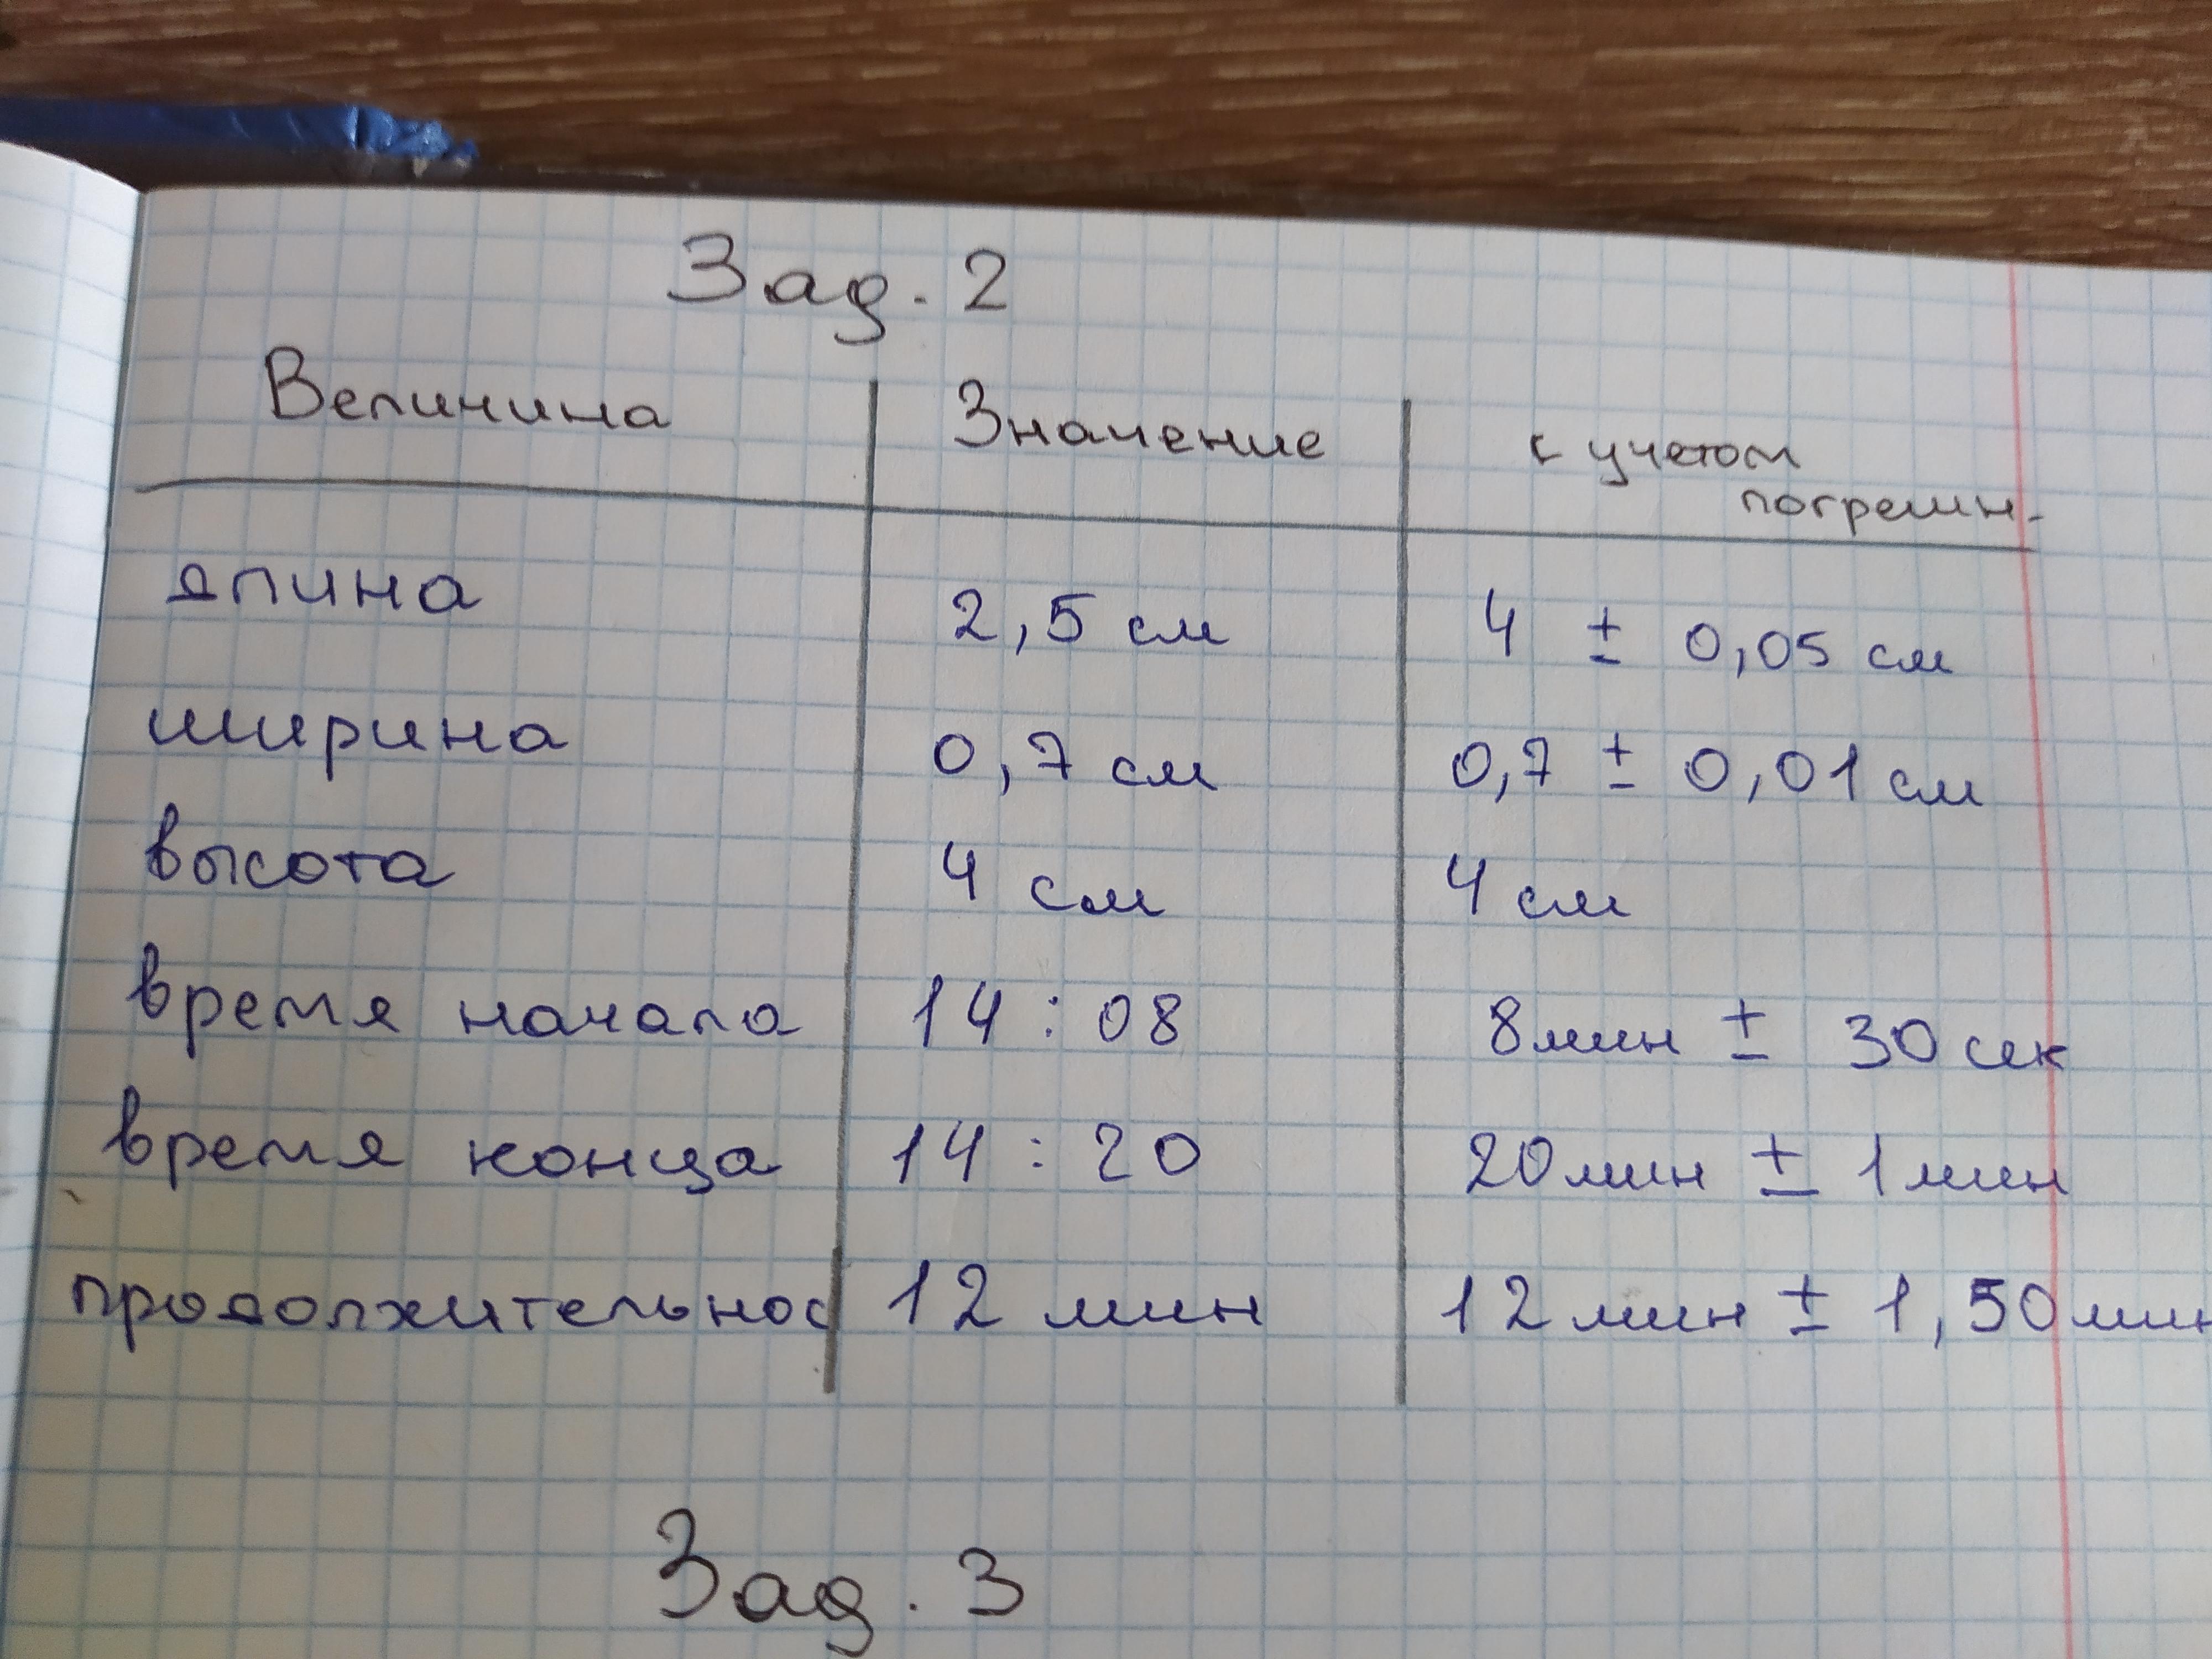 Зад. 2
Величина Значение с учетом
погрешн.
длина 2,5 см 4 ± 0,05 см
ширина 0,7 см 0,7 ± 0,01 см
высота 4 см 4 см
время начала 14 : 08 8 мин ± 30 сек
время конца 14 : 20 20 мин ± 1 мин
продолжительнос 12 мин 12 мин ± 1,50 мин
Зад. 3